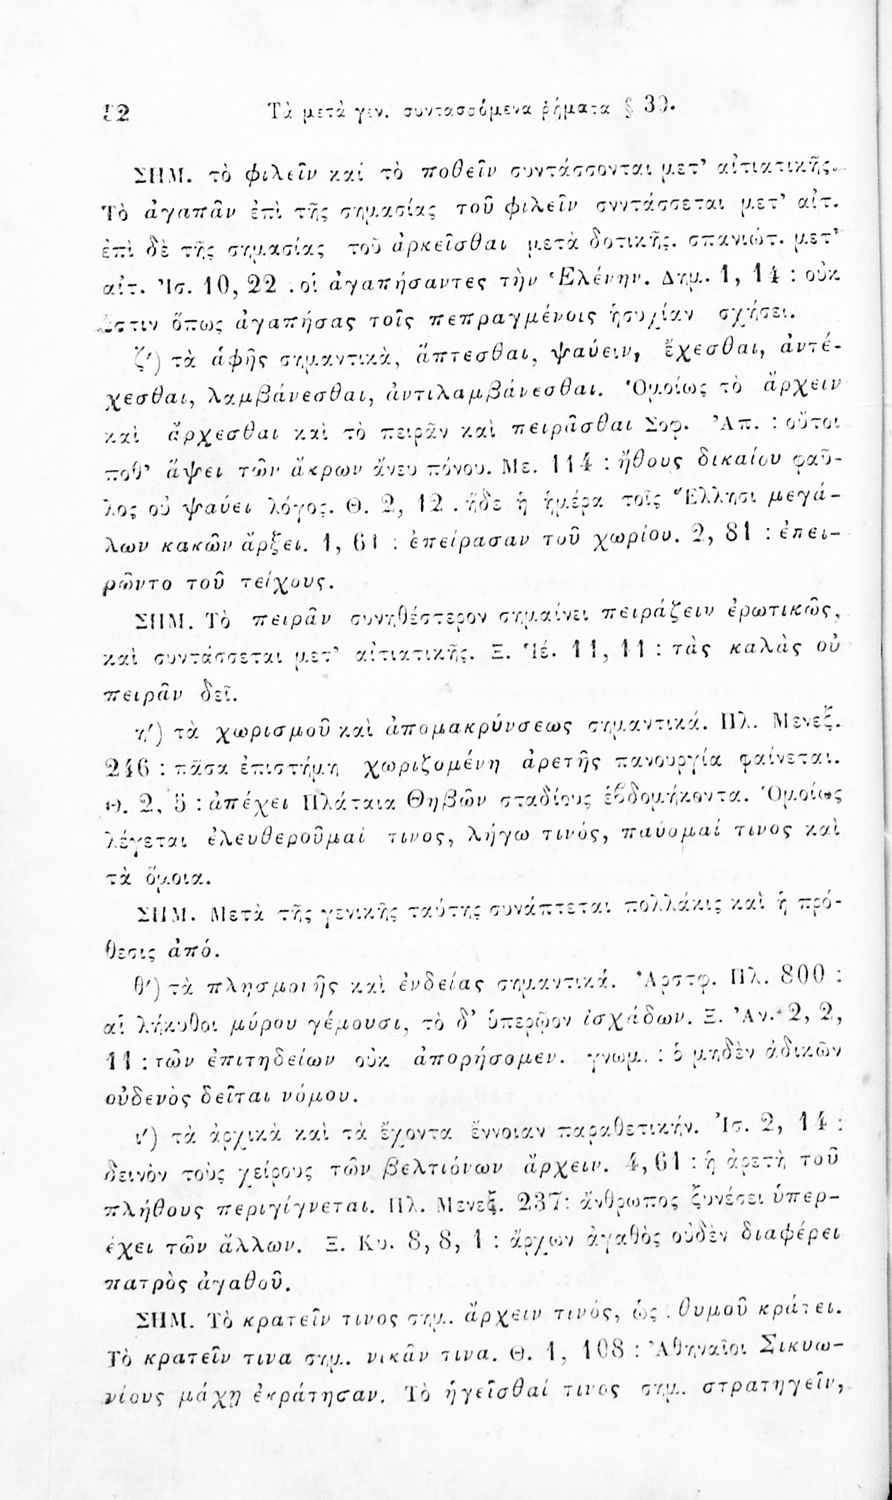 52 Τὰ μετὰ γεν. συντασσόμενα ῥήματα § 30.
ΣΗΜ. τὸ φιλεῖν καί τὸ ποθεῖν συντάσσονται μετ’ αἰτιατικῆς.
Τὸ ἀγαπᾶν ἐπὶ τῆς σημασίας τοῦ φιλεῖν συντάσσεται μετ’ αἰτ.
ἐπὶ δὲ τῆς σημασίας τοῦ ἀρκεῖσθαι μετὰ δοτικῆς. σπανιώτ. μετ’
αἰτ. Ἰσ. 10, 22 . οἱ ἀγαπήσαντες τὴν Ἑλένην. Δημ. 1, 14 : οὐκ
ἔστιν ὅπως ἀγαπήσας τοῖς πεπραγμένοις ἡσυχίαν σχήσει.
ζ') τὰ ἁφῆς σημαντικὰ, ἅπτεσθαι, ψαύειν, ἔχεσθαι, ἀντέ-
χεσθαι, λαμβάνεσθαι, ἀντιλαμβάνεσθαι. Ὁμοίως τὸ ἄρχειν
καὶ ἄρχεσθαι καὶ τὸ πειρᾶν καὶ πειρᾶσθαι Σοφ. Ἀπ. : οὔτοι
ποθ’ ἅψει τῶν ἄκρων ἄνευ πόνου. Με. 114 : ἤθους δικαίου φαῦ-
λος οὐ ψαύει λόγος. Θ. 2, 12 . ἥδε ἡ ἡμέρα τοῖς Ἕλλησι μεγά-
λων κακῶν ἄρξει. 1, 61 : ἐπείρασαν τοῦ χωρίου. 2, 81 : ἐπει-
ρῶντο τοῦ τείχους.
ΣΗΜ. Τὸ πειρᾶν συνηθέστερον σημαίνει πειράζειν ἐρωτικῶς,
καὶ συντάσσεται μετ’ αἰτιατικῆς. Ξ. Ἱέ. 11, 11 : τὰς καλὰς οὐ
πειρᾶν δεῖ.
η') τὰ χωρισμοῦ καὶ ἀπομακρύνσεως σημαντικά. Πλ. Μενεξ.
246 : πᾶσα ἐπιστήμη χωριζομένη ἀρετῆς πανουργία φαίνεται.
Θ. 2, 5 : ἀπέχει Πλάταια Θηβῶν σταδίους ἑβδομήκοντα. Ὁμοίως
λέγεται ἐλευθεροῦμαί τινος, λήγω τινός, παύομαί τινος καὶ
τὰ ὅμοια.
ΣΗΜ. Μετὰ τῆς γενικῆς ταύτης συνάπτεται πολλάκις καὶ ἡ πρό-
θεσις ἀπό.
θ') τὰ πλησμονῆς καὶ ἐνδείας σημαντικά. Ἀρστφ. Πλ. 800 :
αἱ λήκυθοι μύρου γέμουσι, τὸ δ’ ὑπερῷον ἰσχάδων. Ξ. Ἀν. 2, 2,
11 : τῶν ἐπιτηδείων οὐκ ἀπορήσομεν. γνωμ. : ὁ μηδὲν ἀδικῶν
οὐδενὸς δεῖται νόμου.
ι') τὰ ἀρχικὰ καὶ τὰ ἔχοντα ἔννοιαν παραθετικήν. Ἰσ. 2, 14 :
δεινὸν τοὺς χείρους τῶν βελτιόνων ἄρχειν. 4, 61 : ἡ ἀρετὴ τοῦ
πλήθους περιγίγνεται. Πλ. Μενεξ. 237: ἄνθρωπος ξυνέσει ὑπερ-
έχει τῶν ἄλλων. Ξ. Κυ. 8, 8, 1 : ἄρχων ἀγαθὸς οὐδὲν διαφέρει
πατρὸς ἀγαθοῦ.
ΣΗΜ. Τὸ κρατεῖν τινος σημ. ἄρχειν τινός, ὡς : θυμοῦ κράτει.
Τὸ κρατεῖν τινα σημ. νικᾶν τινα. Θ. 1, 108 : Ἀθηναῖοι Σικυω-
νίους μάχῃ ἐκράτησαν. Τὸ ἡγεῖσθαί τινος σημ. στρατηγεῖν,